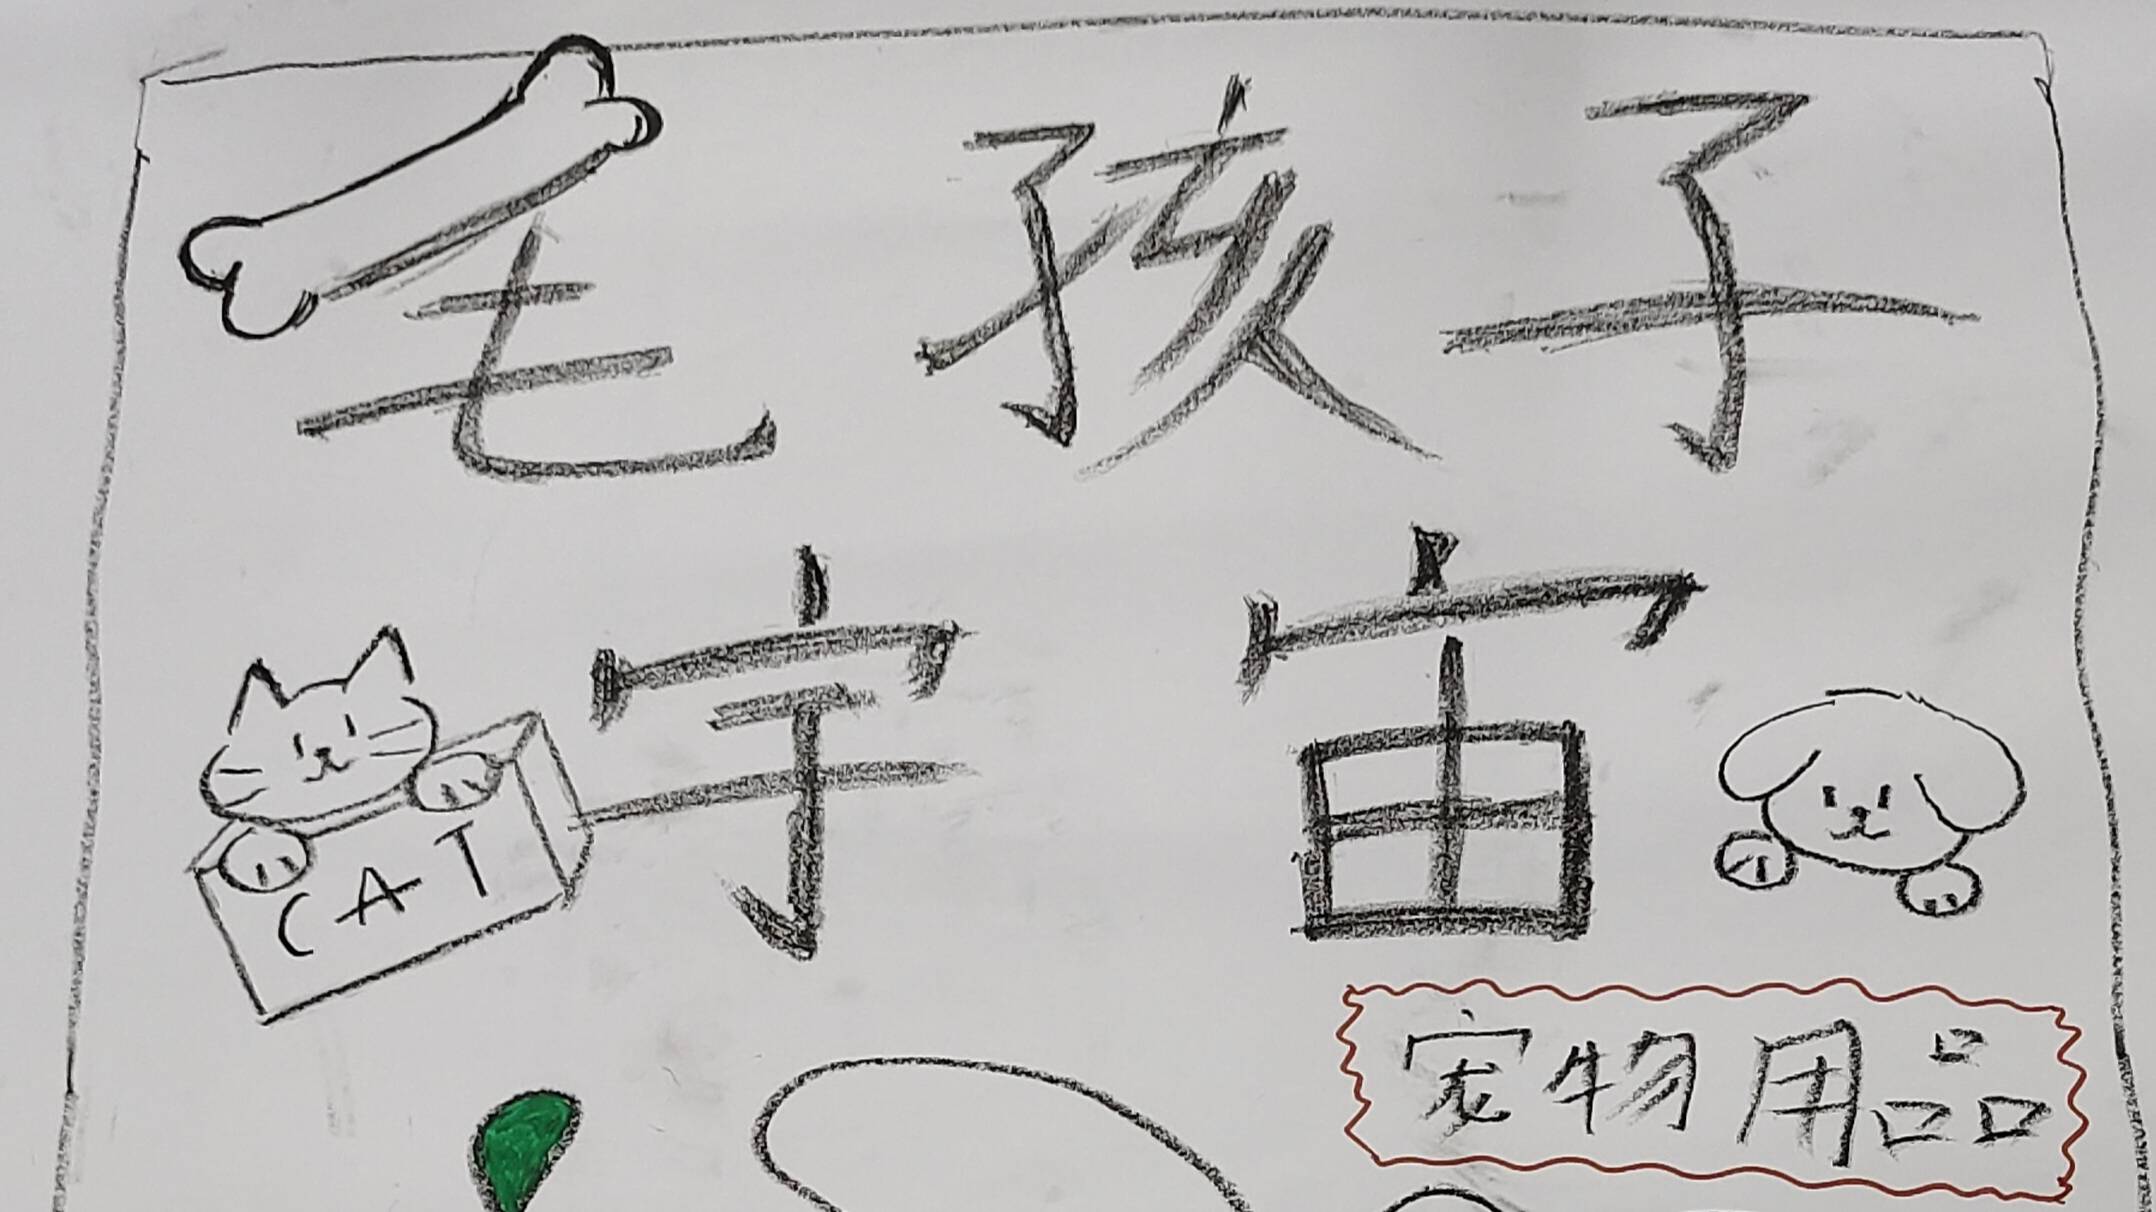 毛孩子
宇宙
CAT
宠物用品